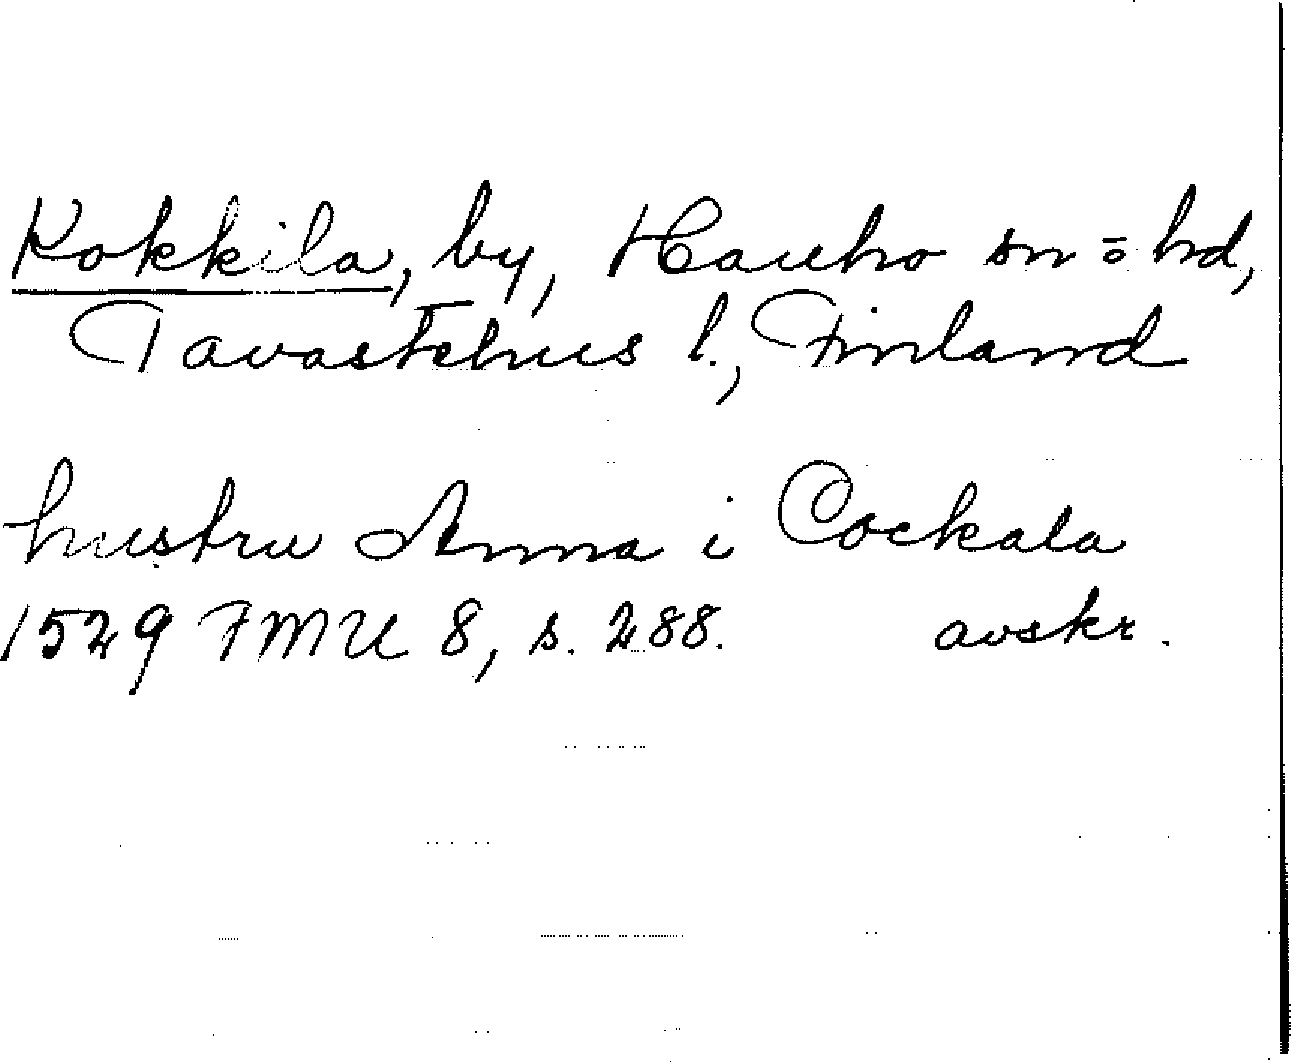 Kokkila, by, Hauho sn o hd,
Tavastehus l., Finland
hustru Anna i Cockala
1529 FMU 8, s. 288. avskr.